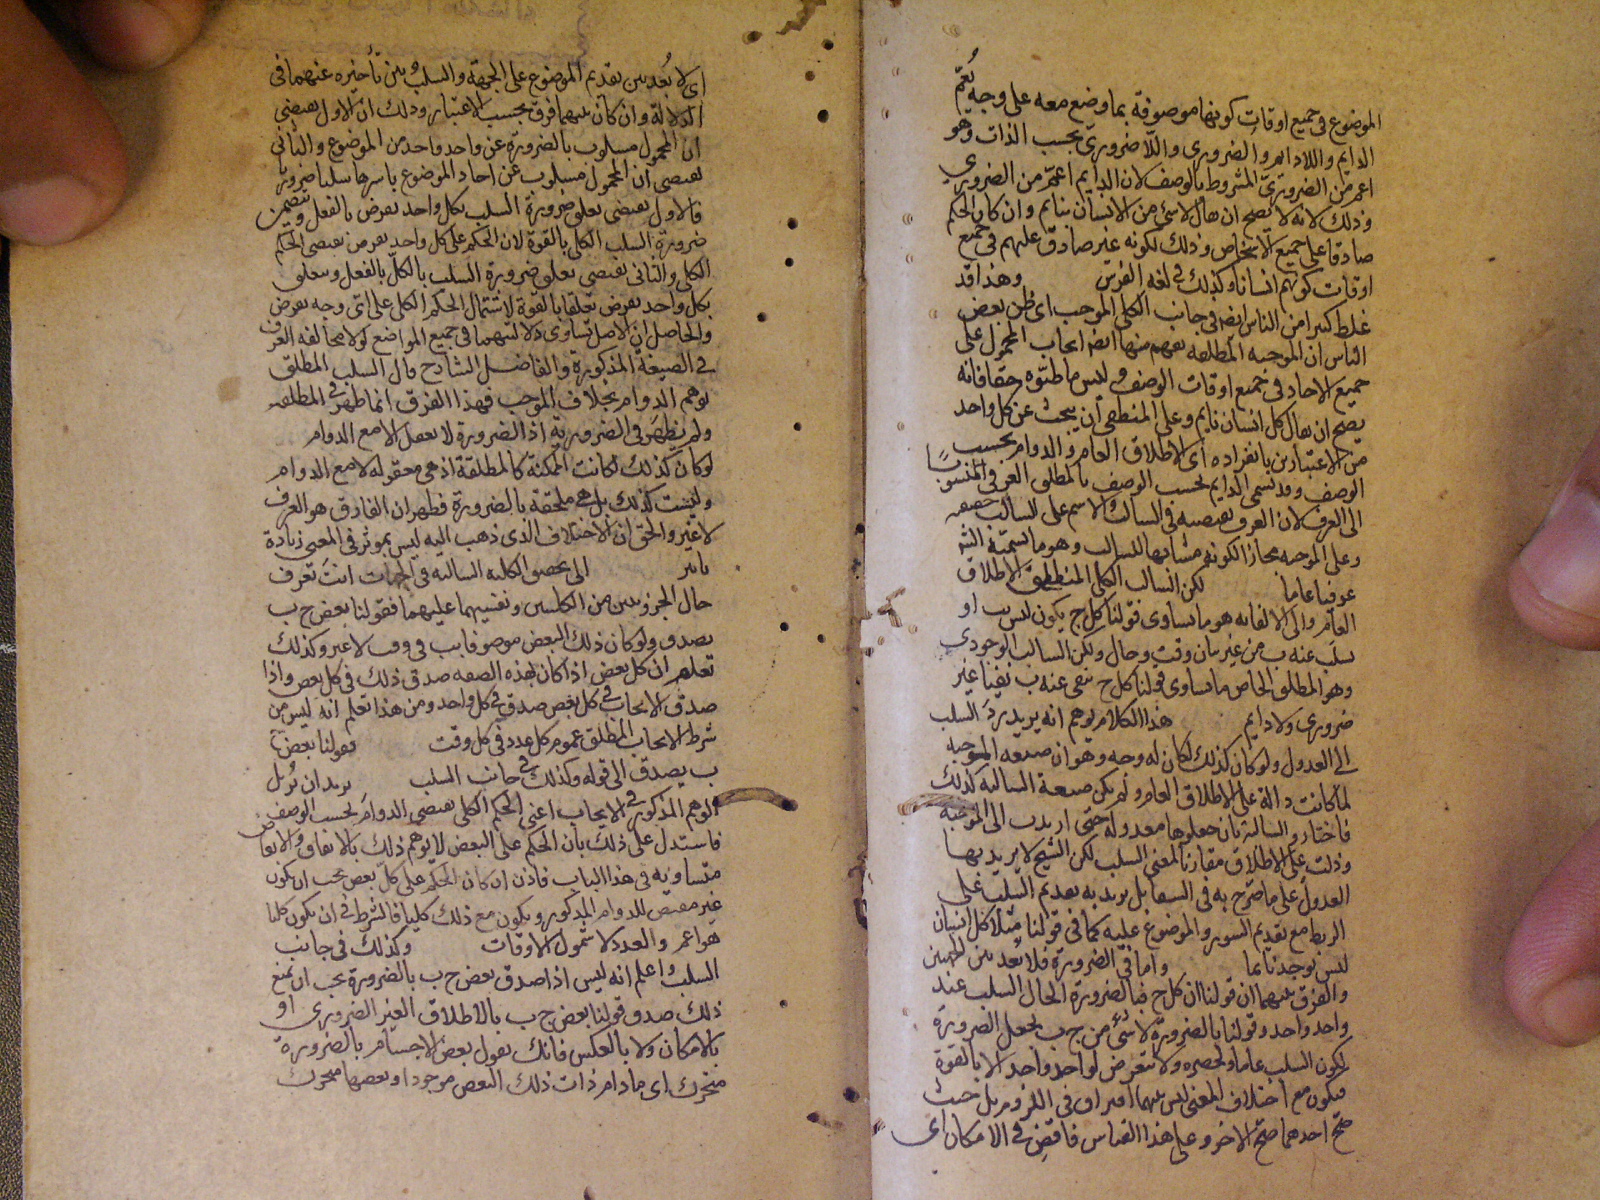 الموضوع في جميع اوقات كونها موصوفة بما وضع معه على وجه يُعُمّ
الدايم واللادايم والضروري واللاضروري بحسب الذات وهو
اعم من الضروري المشروط بالوصف لان الدايم اعم من الضروري
وذلك لانه لا يصح ان يقال لا شئ من الانسان بنايم وان كان الحكم
صادقا على جميع الاشخاص وذلك لكونه غير صادق عليهم في جميع
اوقات كونهم انسانا وكذلك في لغه الفرس وهذا قد
غلط كثيرا من الناس ايضا في جانب الكلي الموجب اى ظن بعض
الناس ان الموجبه المطلقه يفهم منها ايضا ايجاب المحمول على
جميع الاحاد في جميع اوقات الوصف وليس ما ظنوه حقا فانه
يصح ان يقال كل انسان نايم وعلى المنطقى ان يبحث عن كل واحد
من الاعتبارين بانفراده اى الاطلاق العام والدوام بحسب
الوصف وقد يسمى الدايم بحسب الوصف بالمطلق العرفى المنسوب
الى العرف لان العرف يقتضيه في السالب والاسم على السالب حقيقه
وعلى الموجبه مجازا لكونه مشابها للسالب وهو ما يسميه الشيخ
عرفيا عاما لكن السالب الكلي المطلق الاطلاق
العام والى الالف فانه هو ما يساوى قولنا كل ج يكون ليس ب او
يسلب عنه ب من غير بيان وقت وحال وليكن السالب الوجودي
وهو المطلق الخاص ما يساوى قولنا كل ج ينفى عنه ب نفيا غير
ضروري ولا دايم هذا الكلام يوهم انه يريد ردّ السلب
الى العدول ولو كان كذلك لكان له وجه وهو ان صيغه الموجبه
لما كانت دالة على الاطلاق العام ولم يكن صيغة السالبه كذلك
فاختار والسالبة بان جعلوها معدولة حتى اريدت الى الموجبه
ودلت على الاطلاق مقارنا لمعنى السلب لكن الشيخ لا يريد بها
العدول على ما صرح به في الشفا بل يريد به تقديم السلب على
الربط مع تقديم السور والموضوع عليه كما في قولنا مثلا كل انسان
ليس يوجد نايما واما في الضرورة فلا بُعد بين الجهتين
والفرق بينهما ان قولنا ان كل ج فبالضرورة الحال السلب عند
واحد واحد وقولنا بالضرورة لا شئ من ج ب يجعل الضرورة
لكون السلب عاما ولحصره ولا يتعرض لواحد واحد الا بالقوة
فيكون مع اختلاف المعنى ليس بينهما افتراق في اللزوم بل حيث
صح احدهما صح الاخر وعلى هذا القياس فاقض في الامكان اى
اى لا بُعد بين تقديم الموضوع على الجهة والسلب وبين تأخيره عنهما في
الدلالة وان كان بينهما فرق بحسب الاعتبار وذلك ان الاول يقتضى
ان المحمول مسلوب بالضرورة عن واحد واحد من الموضوع والثانى
يقتضى ان المحمول مسلوب عن احاد الموضوع باسرها سلبا ضروريا
فالاول يقتضى تعلق ضرورة السلب بكل واحد يفرض بالفعل ويتضمن
ضرورة السلب الكلى بالقوة لان الحكم على كل واحد يفرض يقتضى الحكم
الكلى والثانى يقتضى تعلق ضرورة السلب بالكل بالفعل ويتعلق
بكل واحد يفرض تعلقا بالقوة لاشتمال الحكم الكلى على اىّ وجه يفرض
والحاصل ان الاصل تساوى دلالتيهما في جميع المواضع لولا مخالفه العرف
في الصيغة المذكورة والفاضل الشارح قال السلب المطلق
يوهم الدوام بخلاف الموجب فهذا الفرق انما ظهر في المطلقه
ولم يظهر في الضروريه اذ الضرورة لا تعقل الا مع الدوام
لو كان كذلك لكانت الممكنة كالمطلقة اذ هى معقوله لا مع الدوام
وليست كذلك بل هى ملحقة بالضرورة فظهر ان الفارق هو العرف
لا غير والحق ان الاختلاف الذى ذهب اليه ليس بموثر في المعنى زيادة
تاثير الى تحقيق الكليه السالبه في الجهات انت تعرف
حال الجزويتين من الكليتين وتقيسهما عليهما فقولنا بعض ج ب
يصدق ولو كان ذلك البعض موصوفا ب في وقت لا غير وكذلك
تعلم ان كل بعض اذا كان بهذه الصفه صدق ذلك في كل بعض واذا
صدق الايجاب في كل بعض صدق في كل واحد ومن هذا تعلم انه ليس من
شرط الايجاب المطلق عموم كل عدد في كل وقت فقولنا بعض ج
ب يصدق الى قوله وكذلك في جانب السلب يريد ان يُزيل
الوهم المذكور في الايجاب اعنى الحكم الكلى يقتضى الدوام بحسب الوصف
فاستدل على ذلك بان الحكم على البعض لا يوهم ذلك بالاتفاق والابعاض
متساويه في هذا الباب فاذن ان كان الحكم على كل بعض يجب ان يكون
غير مقتض للدوام المذكور ويكون مع ذلك كليا فالشرط في ان يكون كليا
هو اعم والعدد لا شمول الاوقات وكذلك في جانب
السلب واعلم انه ليس اذا صدق بعض ج ب بالضرورة يجب ان يمنع
ذلك صدق قولنا بعض ج ب بالاطلاق الغير الضروري او
بالامكان ولا بالعكس فانك تقول بعض الاجسام بالضرورة
متحرك اى مادام ذات ذلك البعض موجودا وبعضها متحرك